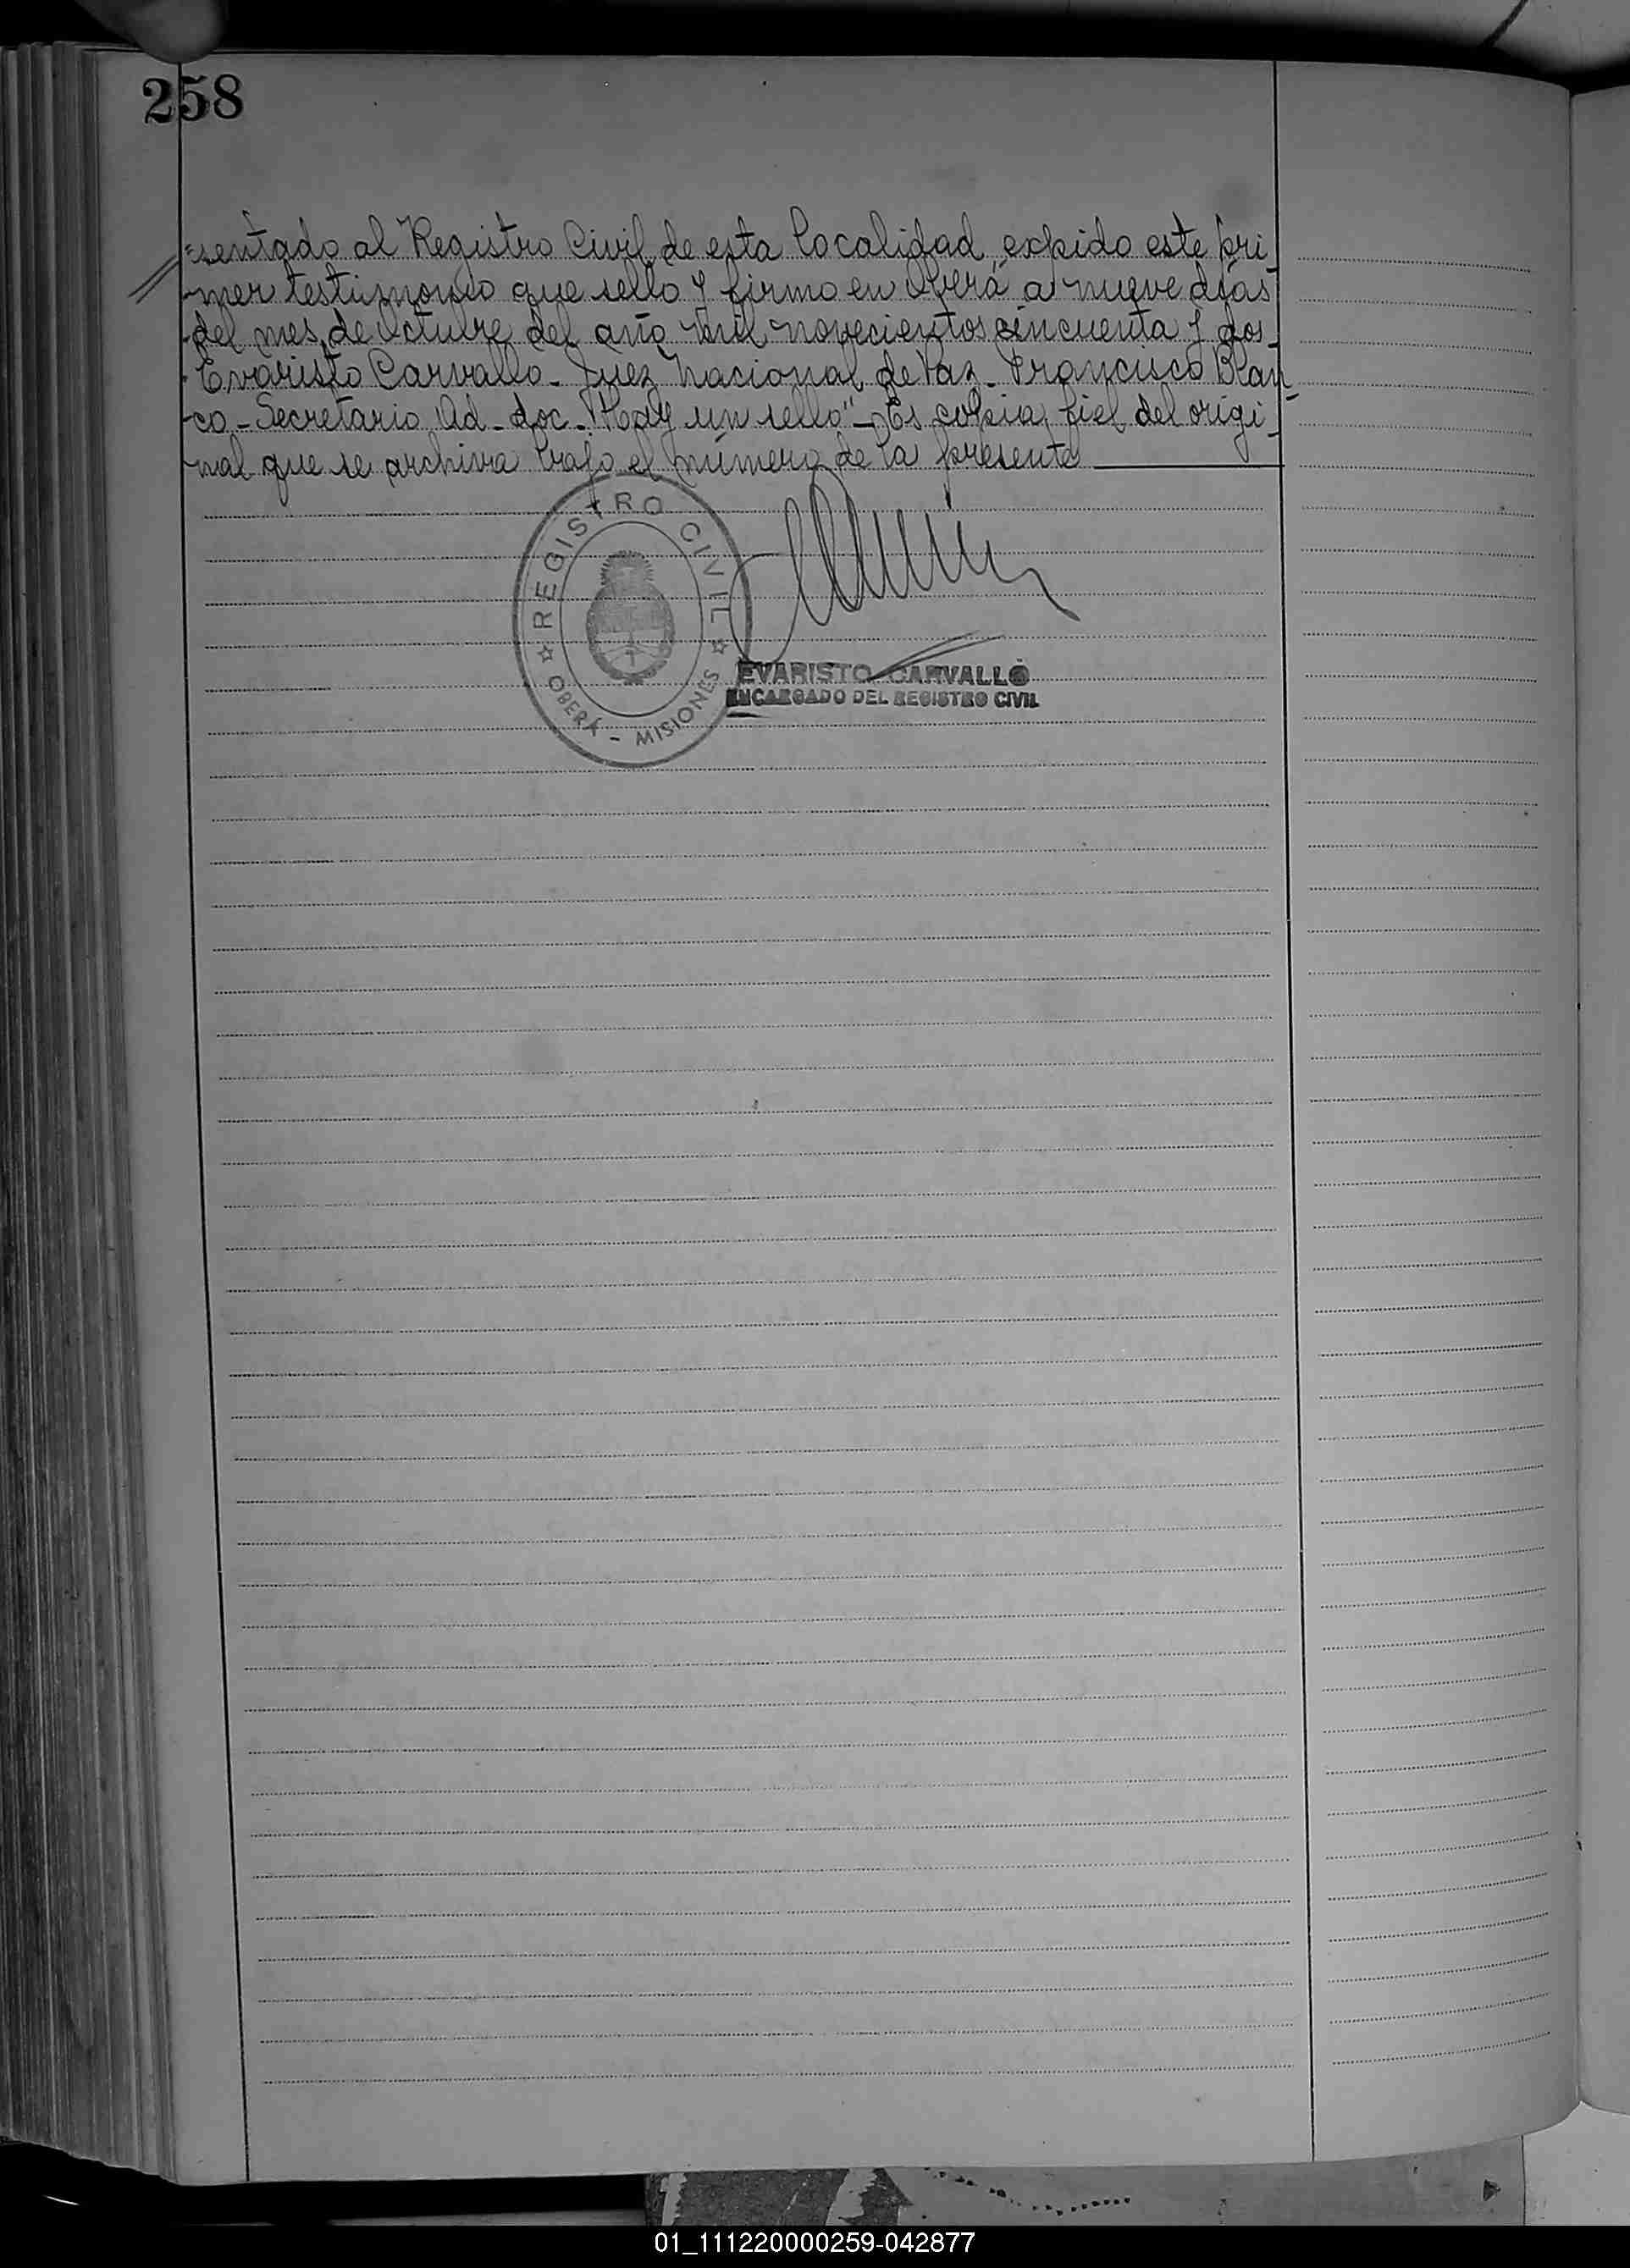 258
=sentado al Registro Civil de esta localidad, expido este pri-
-mer testimonio que sello y firmo en Oberá a nueve días
-del mes de Octubre del año mil novecientos cincuenta y dos-
-Evaristo Carvallo- Juez Nacional de Paz- Francisco Blan-
-co- Secretario Ad-doc- "Hay un sello"- Es copia fiel del origi-
-nal que se archiva bajo el número de la presente
REGISTRO CIVIL
OBERÁ - MISIONES
EVARISTO CARVALLO
ENCARGADO DEL REGISTRO CIVIL
01_111220000259-042877